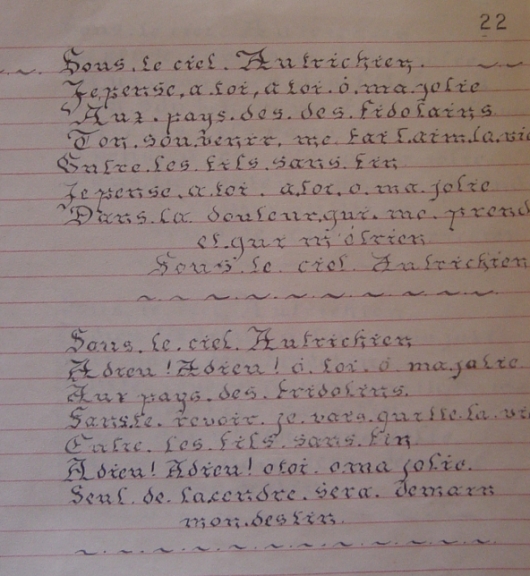 22
Sous. le ciel. Autrichien.
Je pense, a toi, a toi. ô. ma jolie
Aux. pays. des. des. fidolains
Ton. souvenir, me. fait. aim. la. vie
Entre. les. fils. sans. fin
Je pense. a toi. a toi. o. ma. jolie.
Dans. la. douleur. qui. me. prend
et. qui m'étrien
Sous. le. ciel. Autrichien
Sous. le. ciel. Autrichien
Adieu! Adieu! ô. toi. ô ma. jolie.
Aux pays. des. fridolins.
Sans te. revoir. je. vais. quitte. la. vie
Entre. les. fils. sans. fin
Adieu! Adieu! o toi. o ma jolie.
Seul. de. la cendre. sera. demain
mon. destin.